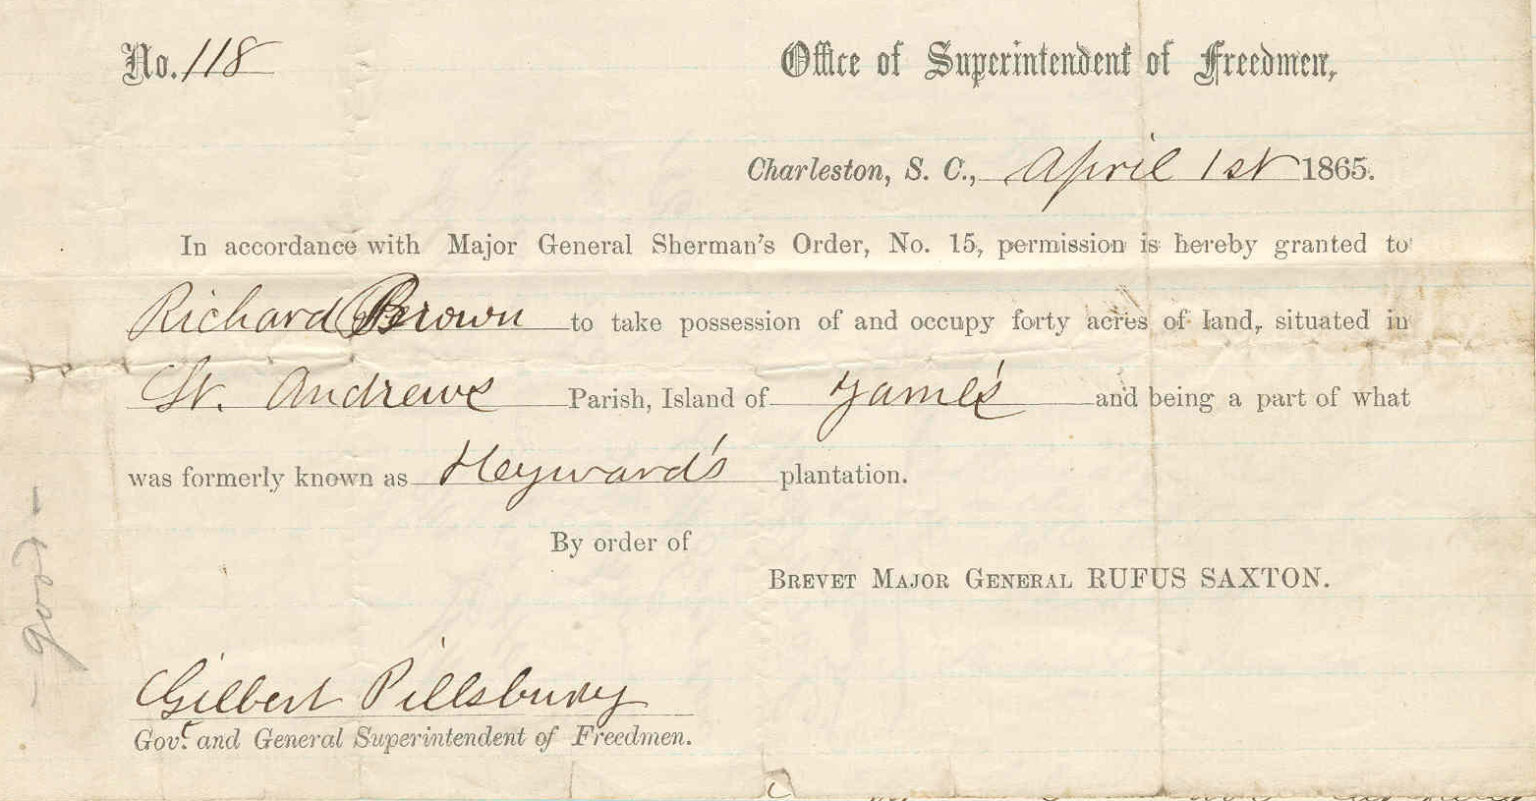 No. 118
Office of Superintendent of Freedmen,
Charleston, S. C., April 1st 1865.
In accordance with Major General Sherman's Order, No. 15, permission is hereby granted to
Richard Brown to take possession of and occupy forty acres of land, situated in
St. Andrews Parish, Island of James and being a part of what
was formerly known as Heyward's plantation.
By order of
Brevet Major General RUFUS SAXTON.
Gilbert Pillsbury
Gov't. and General Superintendent of Freedmen.
- good -